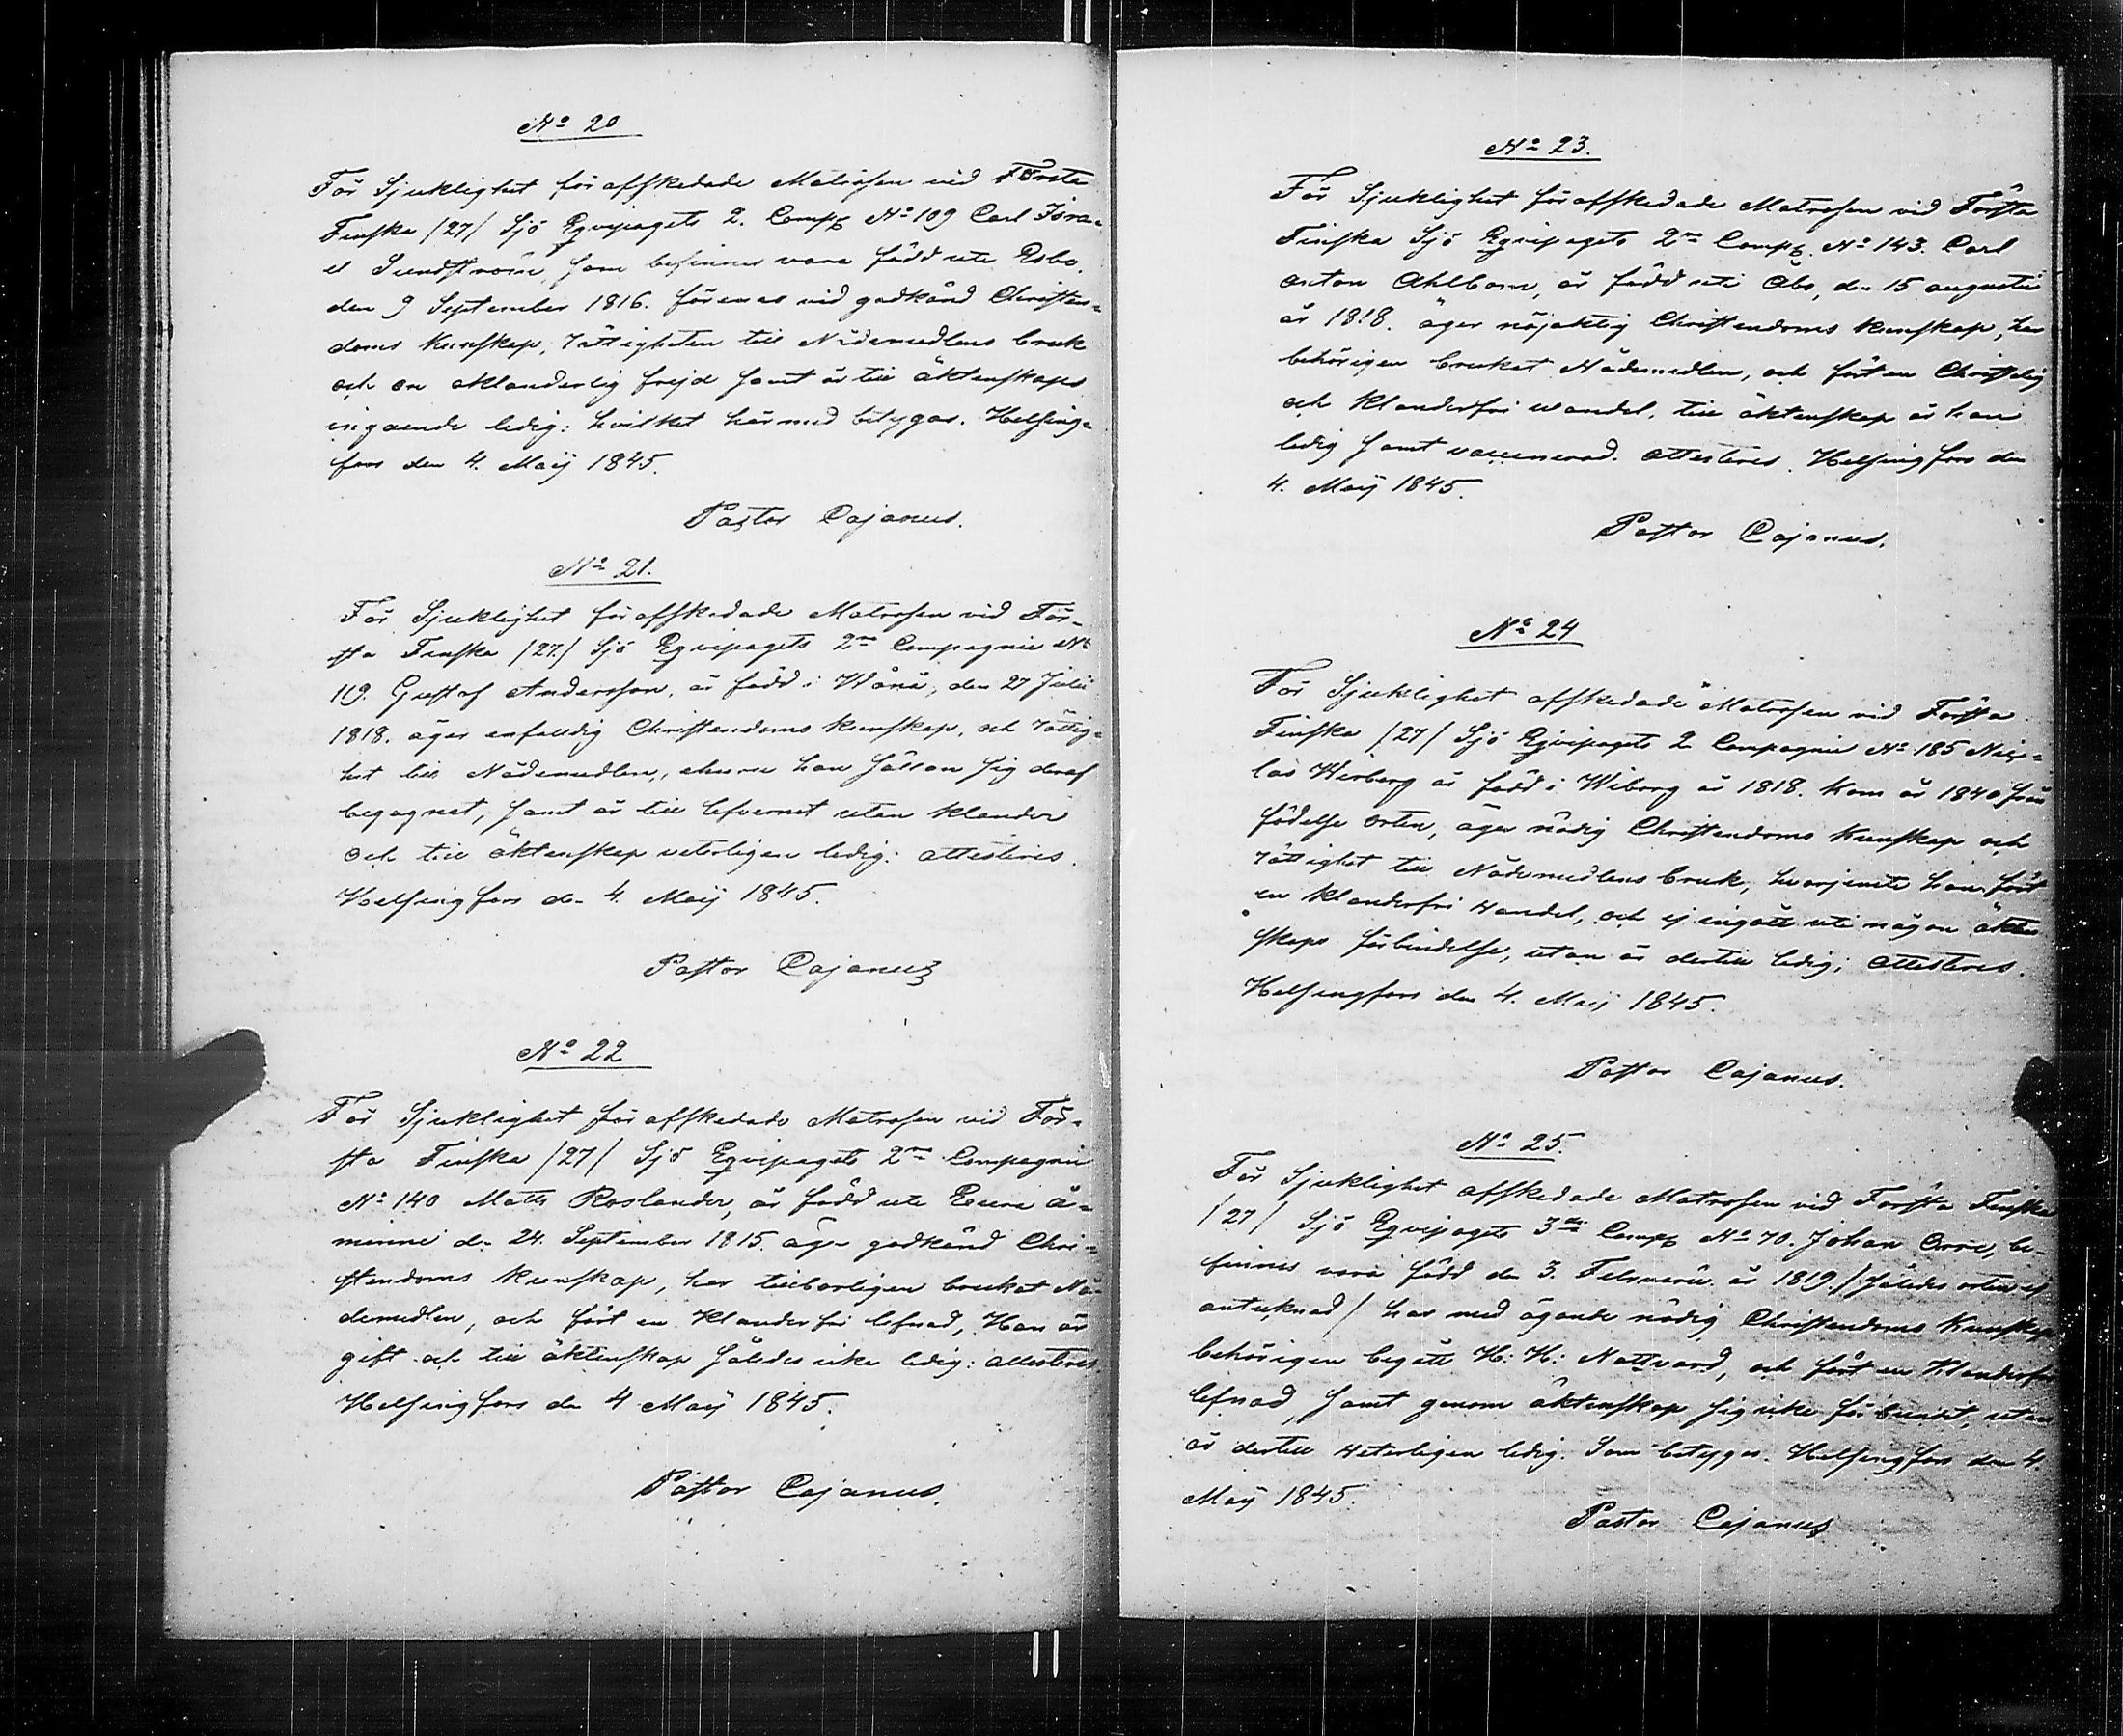 No 20
För Sjuklighet för afskedade Matrosen vid Första
Finska /27/ Sjö Eqvipagets 2. Comp. No 109 Carl Isra-
el Sundström, som befinnes vara född uti Esbo,
den 9 September 1816. förenar vid godkänd Christen-
doms kunskap, rättigheten till Nådemedlens bruk
och en oklanderlig frejd samt är till äktenskaps
ingående ledig: hvilket härmed betygas. Helsing-
fors den 4. Maij 1845.
Pastor Cajanus.
No 21.
För Sjuklighet för afskedade Matrosen vid För-
sta Finska /27./ Sjö Eqvipagets 2ra Compagnie No
119. Gustaf Andersson, är född i Wånå, den 27 Julii
1818. äger enfaldig Christendoms kunskap, och rättig-
het till Nådemedlen, ehuru han sällan sig deraf
begagnat, samt är till lefvernet utan klander
och till äktenskap veterligen ledig: attesteres.
Helsingfors den 4. Maij 1845.
Pastor Cajanus
No 22
För Sjuklighet för afskedade Matrosen vid För-
sta Finska /27/ Sjö Eqvipagets 2ra Compagnie
No 140 Matts Roslander, är född uti Eura å-
minne den 24. September 1815. äger godkänd Chri-
stendoms kunskap, har tillbörligen brukat Nå-
demedlen, och fört en klanderfri lefnad, Han är
gift och till äktenskap således icke ledig: attesteres.
Helsingfors den 4 Maij 1845.
Pastor Cajanus.
No 23.
För Sjuklighet för afskedade Matrosen vid Första
Finska Sjö Eqvipagets 2ra Comp. No 143. Carl
Anton Ahlbom, är född uti Åbo, den 15 augusti
år 1818. äger nöjaktig Christendoms kunskap, har
behörigen brukat Nådemedlen, och fört en Christelig
och klanderfri wandel, till äktenskap är han
ledig samt vaccinerad. attesteres. Helsingfors den
4. Maij 1845.
Pastor Cajanus.
No 24
För Sjuklighet afskedade Matrosen vid Första
Finska /27/ Sjö Eqvipagets 2 Compagnie No 185 Nic-
las Wirberg är född i Wiborg år 1818. kom år 1840 från
födelse orten, äger nödig Christendoms kunskap och
rättighet till Nådemedlens bruk, hvarjemte han fört
en klanderfri wandel, och ej ingått uti någon äkten
skaps förbindelse, utan är dertill ledig; attesteres.
Helsingfors den 4. Maij 1845.
Pastor Cajanus.
No 25.
För Sjuklighet afskedade Matrosen vid Första Finska
/27/ Sjö Eqvipagets 3die Comp. No 70. Johan Orre, be-
finnes vara född den 3. Februarii år 1819. / födelse orten ej
antecknad / har med ägande nödig Christendoms kunskap
behörigen begått H: H: Nattvard, och fört en klanderfri
lefnad, samt genom äktenskap sig icke förbundit, utan
är dertill veterligen ledig. Som betyges. Helsingfors den 4.
Maij 1845.
Pastor Cajanus